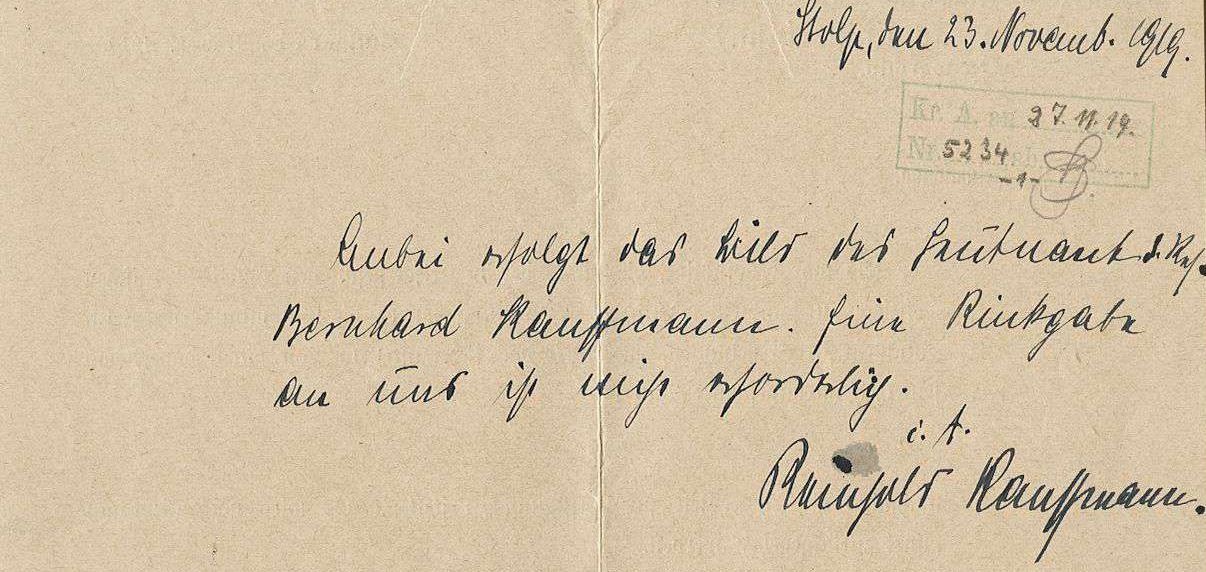 Stolp, den 23. Novemb. 1919.
Kr. A. 27.11.19.
Nr. 5234
-1-
Anbei erfolgt das Bild des Leutnant d. Res.
Bernhard Kauffmann. Eine Rückgabe
an uns ist nicht erforderlich.
i. A.
Reinhold Kauffmann.